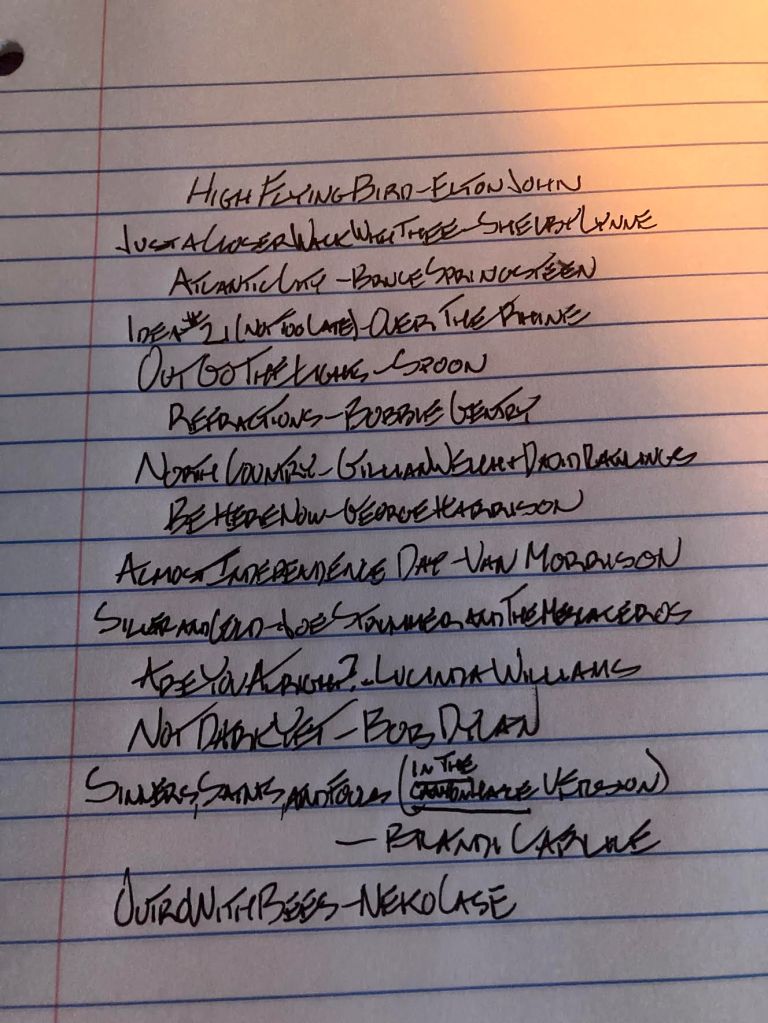 HIGH FLYING BIRD - ELTON JOHN
JUST A CLOSER WALK WITH THEE - SHELBY LYNNE
ATLANTIC CITY - BRUCE SPRINGSTEEN
IDEA #21 (NOT TOO LATE) - OVER THE RHINE
OUT GO THE LIGHTS - SPOON
REFRACTIONS - BOBBIE GENTRY
NORTH COUNTRY - GILLIAN WELCH + DAVID RAWLINGS
BE HERE NOW - GEORGE HARRISON
ALMOST INDEPENDENCE DAY - VAN MORRISON
SILVER AND GOLD - JOE STRUMMER AND THE MESCALEROS
ARE YOU ALRIGHT? - LUCINDA WILLIAMS
NOT DARK YET - BOB DYLAN
SINNERS, SAINTS, AND FOOLS (IN THE VERSION)
- BRANDI CARLILE
OUTRO WITH BEES - NEKO CASE